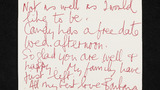 Not as well as I would
like to be.
Candy has a free date
wed. afternoon.
So glad you are well &
happy. My family have
just left.
All my best love Barbara